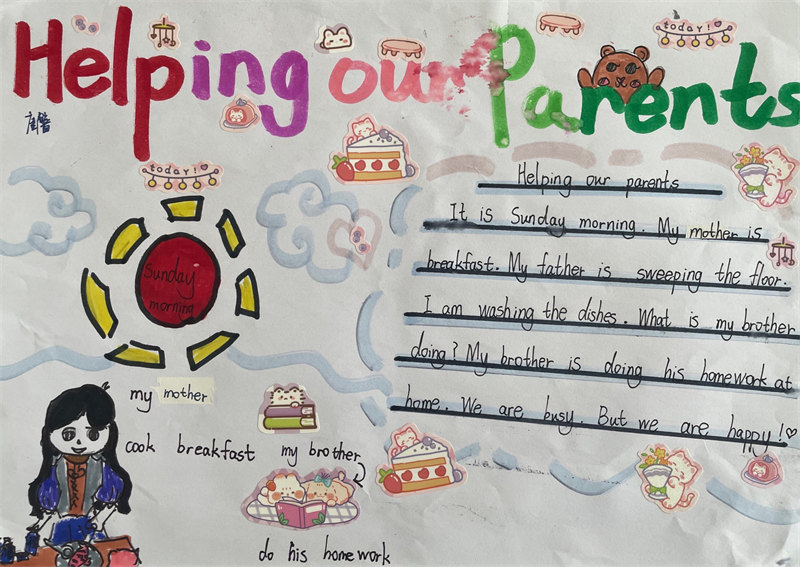 Helping our Parents
today!
today!
Helping our parents
It is Sunday morning. My mother is
breakfast. My father is sweeping the floor.
I am washing the dishes. What is my brother
doing? My brother is doing his homework at
home. We are busy. But we are happy!
Sunday
morning
my mother
cook breakfast
my brother
do his homework